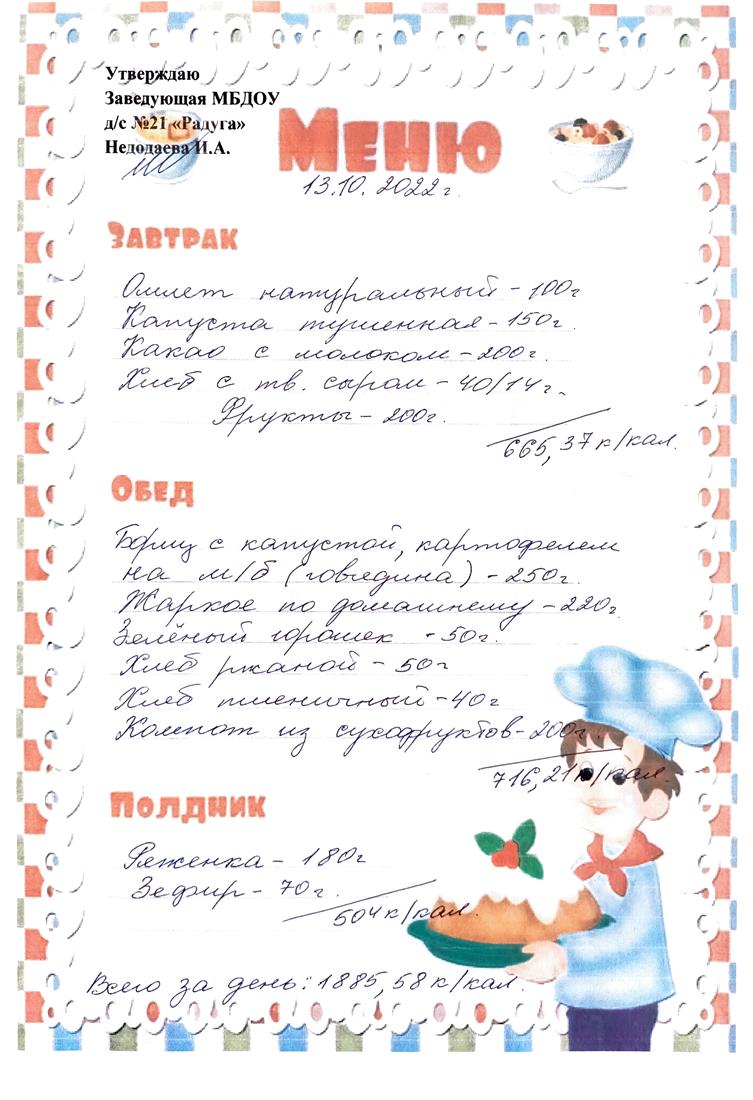 Утверждаю
Заведующая МБДОУ
д/с №21 «Радуга»
Недодаева И.А.
Меню
13.10.2022г.
Завтрак
Омлет натуральный - 100г
Капуста тушенная - 150г.
Какао с молоком - 200г.
Хлеб с тв. сыром - 40/14г.
Фрукты - 200г.
665,37к/кал.
Обед
Борщ с капустой, картофелем
на м/б (говядина) - 250г.
Жаркое по домашнему - 220г.
Зелёный горошек - 50г.
Хлеб ржаной - 50г
Хлеб пшеничный - 40г
Компот из сухофруктов - 200г.
716,21к/кал.
Полдник
Ряженка - 180г
Зефир - 70г.
504к/кал.
Всего за день: 1885,58к/кал.